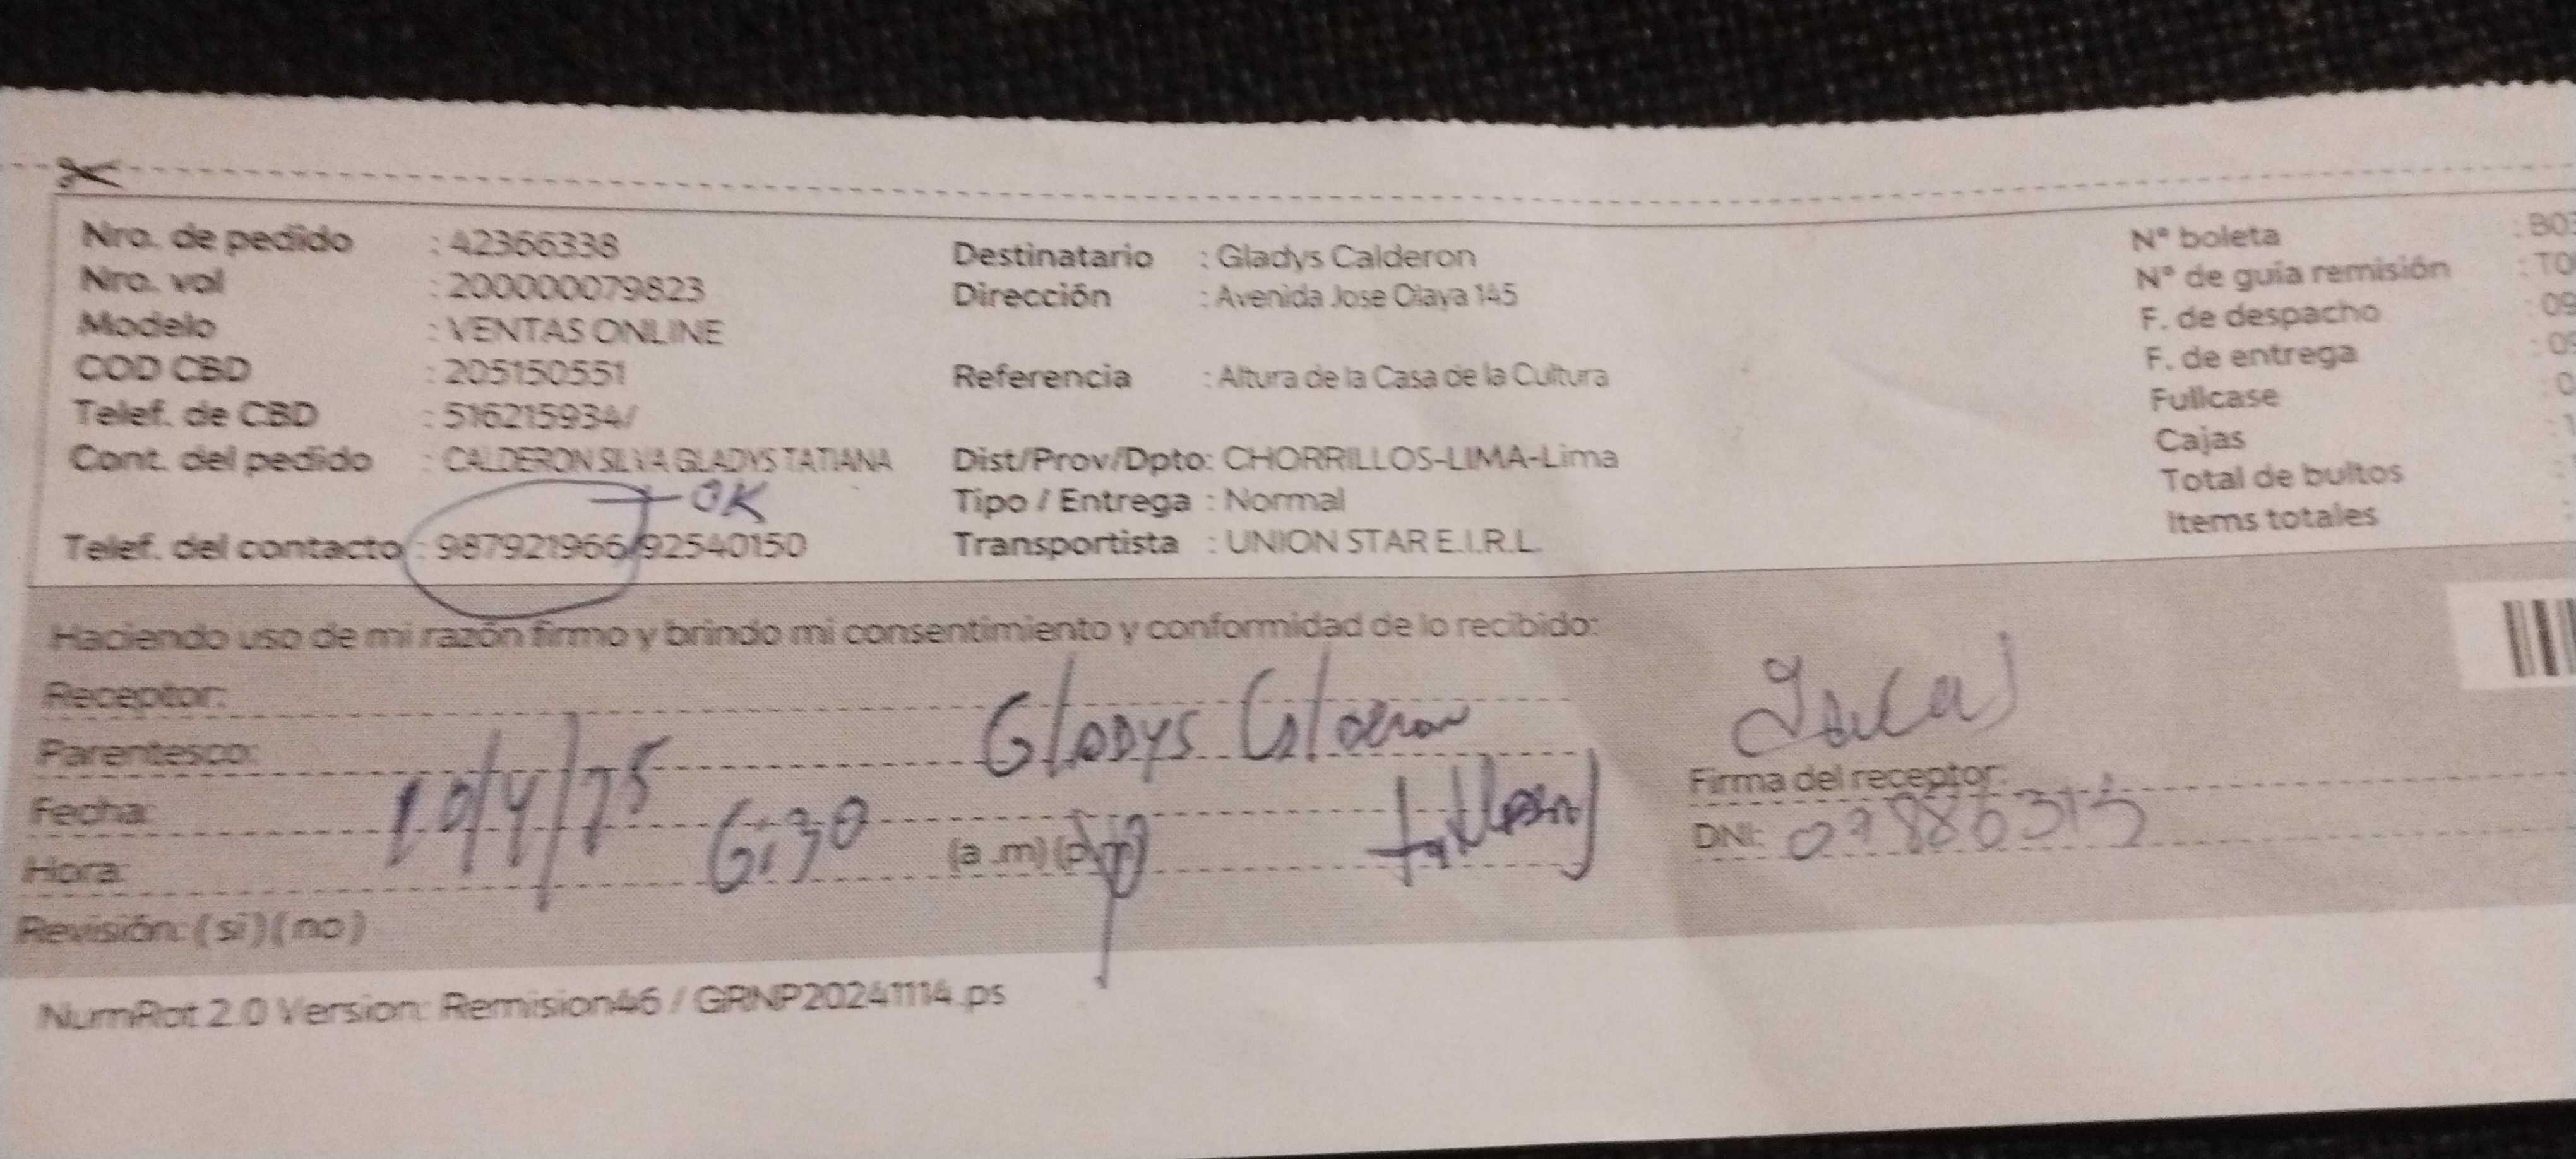 Nro. de pedido : 42366338
Nro. val : 200000079823
Modelo : VENTAS ONLINE
COD CBD : 205150551
Telef. de CBD : 516215934/
Cont. del pedido : CALDERON SILVA GLADYS TATIANA
OK
Telef. del contacto : 987921966/92540150
Destinatario : Gladys Calderon
Dirección : Avenida Jose Olaya 145
Referencia : Altura de la Casa de la Cultura
Dist/Prov/Dpto: CHORRILLOS-LIMA-Lima
Tipo / Entrega : Normal
Transportista : UNION STAR E.I.R.L.
N° boleta : B0
N° de guía remisión : T0
F. de despacho : 09
F. de entrega : 09
Fullcase : 0
Cajas : 1
Total de bultos :
Items totales :
Haciendo uso de mi razón firmo y brindo mi consentimiento y conformidad de lo recibido:
Receptor: Gladys Calderon
Parentesco:
Fecha:
Hora: 6:30 (a.m)
Revisión: (si)(no)
Firma del receptor:
DNI:
NumRot 2.0 Version: Remision46 / GRNP20241114.ps